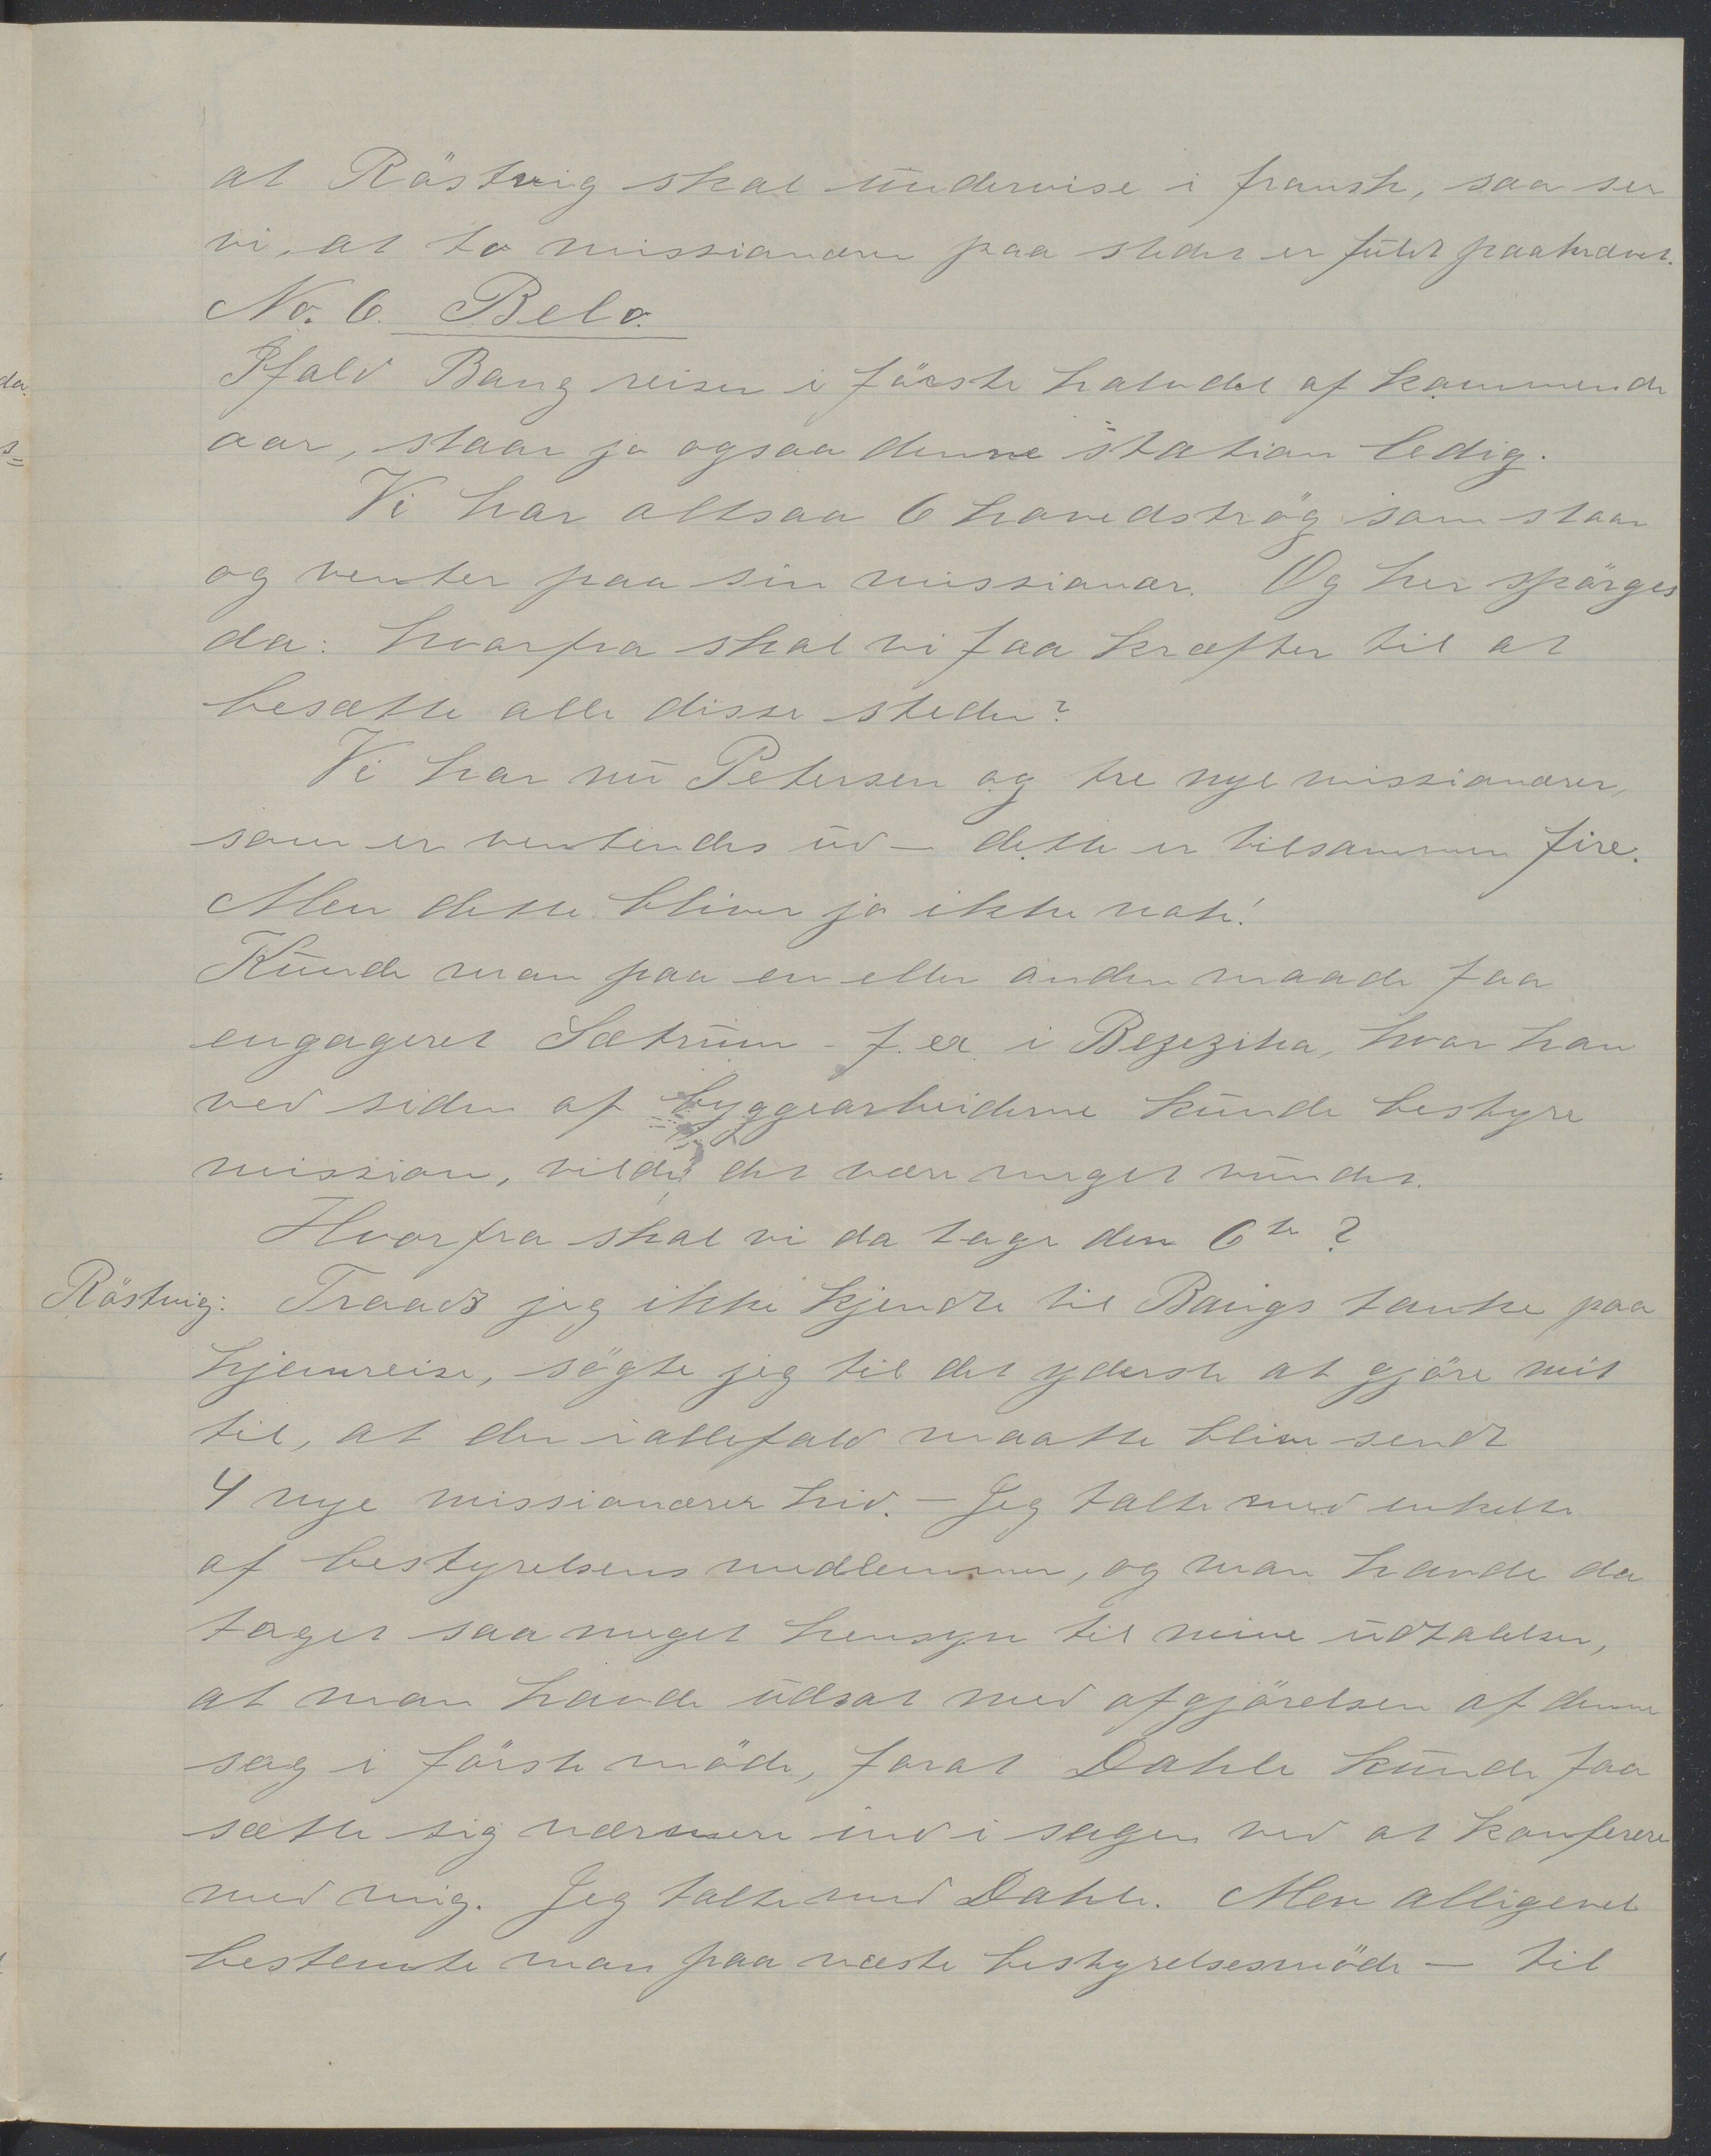 at Röstvig skal undervise i fransk, saa ser
vi, at to missionærer paa stedet er fuldt paakrævet.
No. 6. Belo.
Ifald Bang reiser i förste halvdel af kommende
aar, staar jo ogsaa denne station ledig.
Vi har altsaa 6 hovedströg som staar
og venter paa sin missionær. Og her spörges
da: hvorfra skal vi faa kræfter til at
besætte alle disse steder?
Vi har nu Petersen og tre nye missionærer,
som er ventendes ud – dette er tilsammen fire.
Men dette bliver jo ikke nok!
Kunde man paa en eller anden maade faa
engageret Sætrum – f. ex. i Bezezika, hvor han
ved siden af byggearbeiderne kunde bestyre
mission, vilde det være meget vundet.
Hvorfra skal vi da tage den 6te?
Röstvig: Traads jeg ikke kjendte til Bangs tanke paa
hjemreise, sögte jeg til det yderste at gjöre mit
til, at der iallefald maatte blive sendt
4 nye missionærer hid. – Jeg talte med enkelte
af bestyrelsens medlemmer, og man havde da
taget saa meget hensyn til mine udtalelser,
at man havde udsat med afgjörelsen af denne
sag i förste möde, forat Dahle kunde faa
sætte sig nærmere ind i sagen ved at konferere
med mig. Jeg talte med Dahle. Men alligevel
bestemte man paa næste bestyrelsesmöde – til
da.
s=